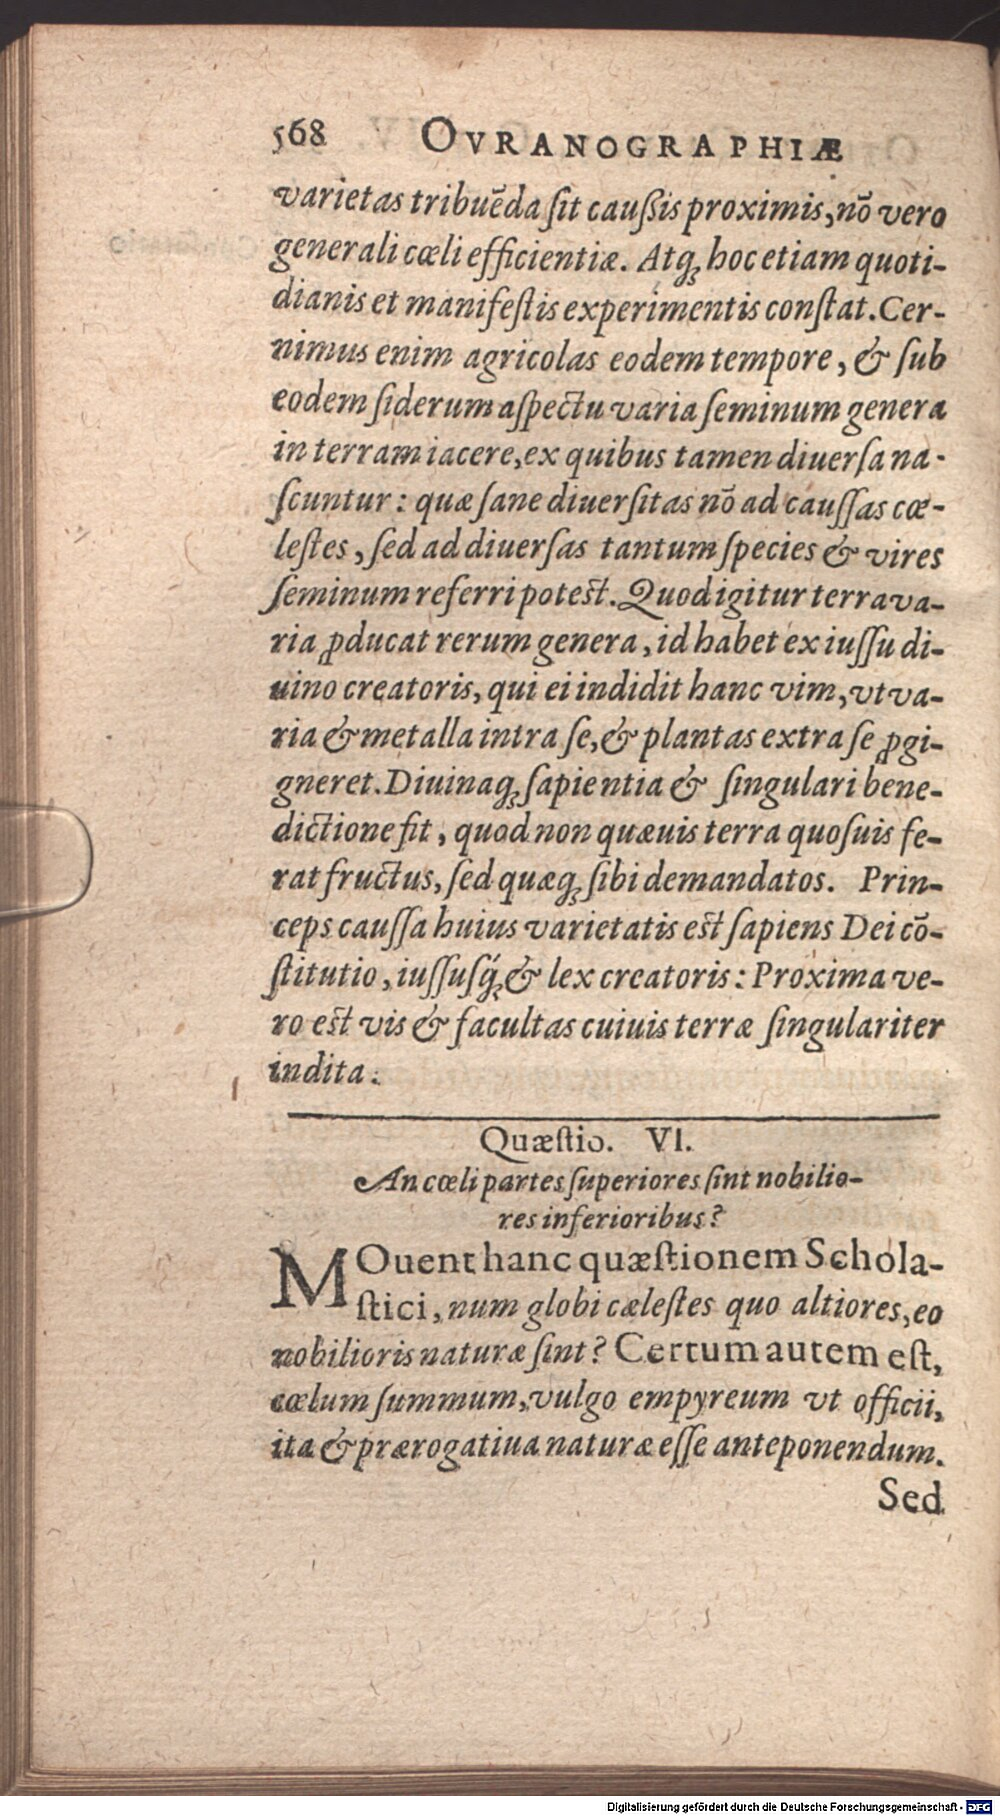 568 OVRANOGRAPHIÆ
varietas tribuēda ſit cauſsis proximis, nō vero
generali cœli efficientiæ. Atq; hoc etiam quoti-
dianis et manifeſtis experimentis conſtat. Cer-
nimus enim agricolas eodem tempore, & ſub
eodem ſiderum aſpectu varia ſeminum genera
in terram iacere, ex quibus tamen diuerſa na-
ſcuntur: quæ ſane diuerſitas nō ad cauſſas cœ-
leſtes, ſed ad diuerſas tantum ſpecies & vires
ſeminum referri poteſt. Quod igitur terra va-
ria ꝓducat rerum genera, id habet ex iuſſu di-
uino creatoris, qui ei indidit hanc vim, vt va-
ria & metalla intra ſe, & plantas extra ſe ꝓgi-
gneret. Diuinaq; ſapientia & ſingulari bene-
dictione fit, quod non quæuis terra quoſuis fe-
rat fructus, ſed quæq; ſibi demandatos. Prin-
ceps cauſſa huius varietatis eſt ſapiens Dei cō-
ſtitutio, iuſſuſq́; & lex creatoris: Proxima ve-
ro eſt vis & facultas cuiuis terræ ſingulariter
indita.
Quæſtio. VI.
An cœli partes ſuperiores ſint nobilio-
res inferioribus?
MOuent hanc quæſtionem Schola-
ſtici, num globi cæleſtes quo altiores, eo
nobilioris naturæ ſint? Certum autem eſt,
cœlum ſummum, vulgo empyreum vt officii,
ita & prærogatiua naturæ eſſe anteponendum.
Sed
Digitalisierung gefördert durch die Deutsche Forschungsgemeinschaft - DFG